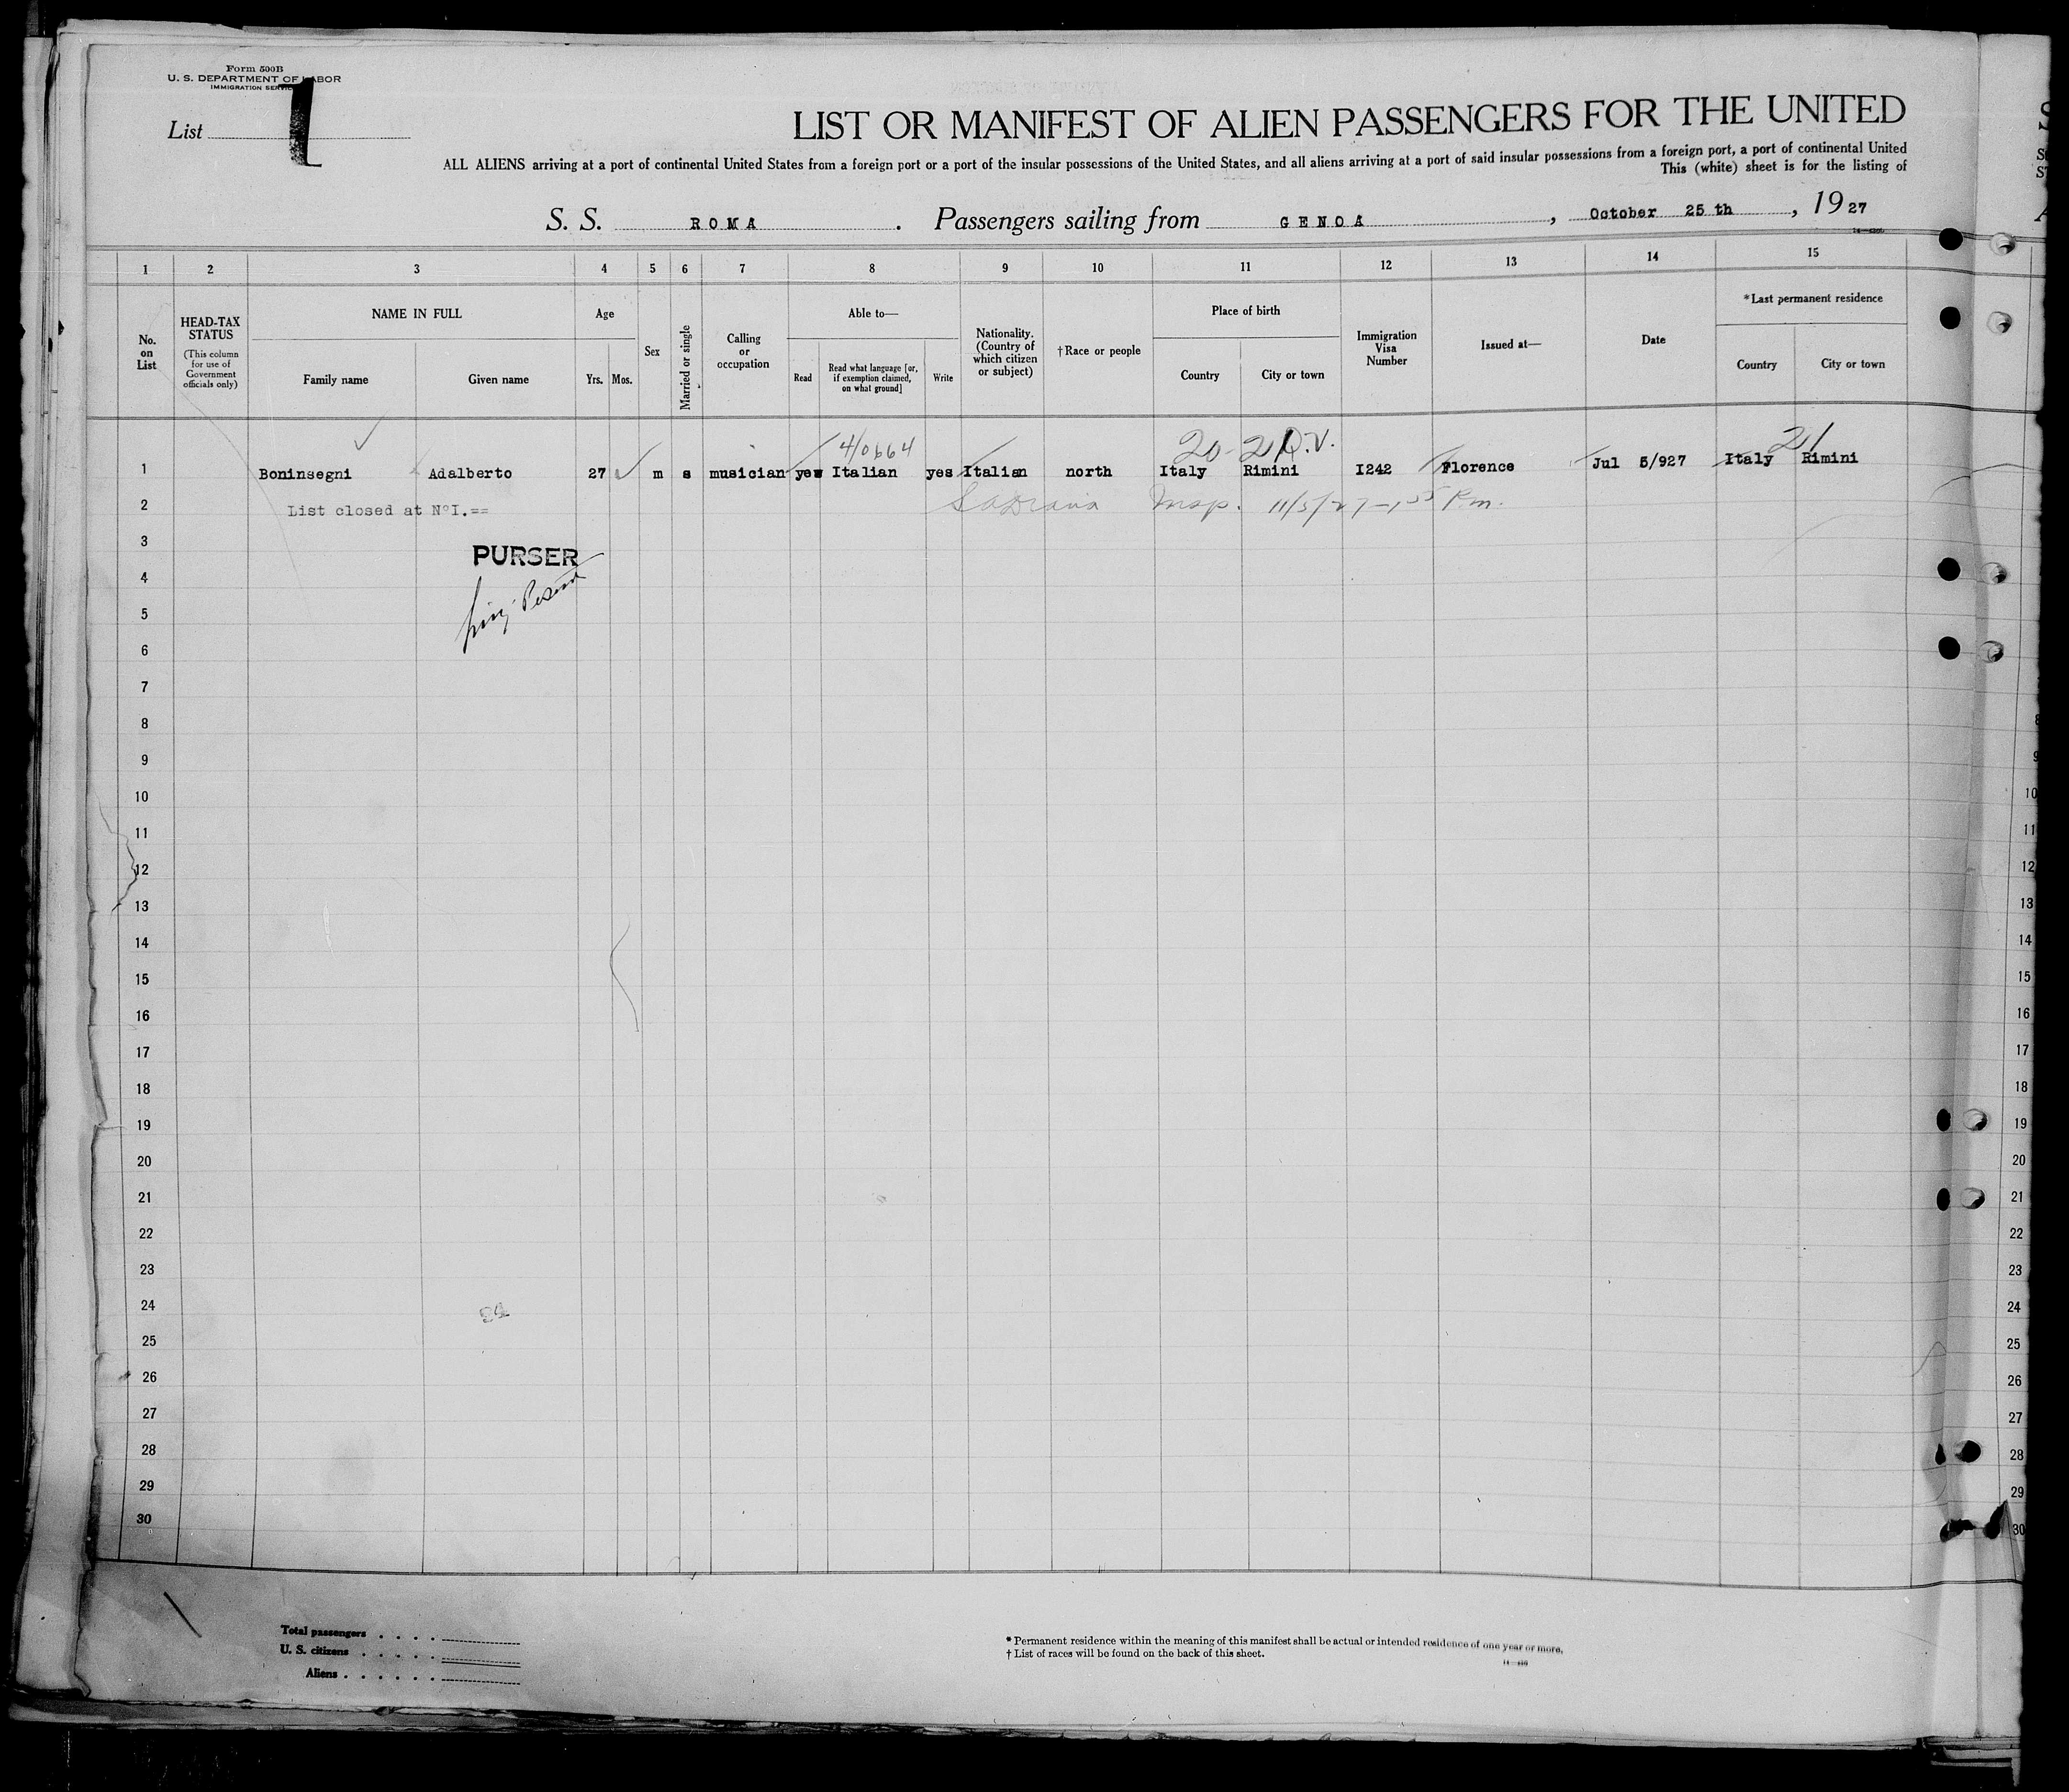 Form 500B
U. S. DEPARTMENT OF LABOR
IMMIGRATION SERVICE
List 1
LIST OR MANIFEST OF ALIEN PASSENGERS FOR THE UNITED
ALL ALIENS arriving at a port of continental United States from a foreign port or a port of the insular possessions of the United States, and all aliens arriving at a port of said insular possessions from a foreign port, a port of continental United
This (white) sheet is for the listing of
S. S. ROMA. Passengers sailing from GENOA, October 25 th, 1927
1 2 3 4 5 6 7 8 9 10 11 12 13 14 15
No. on List
HEAD-TAX STATUS
(This column for use of Government officials only)
NAME IN FULL
Family name Given name
Age
Yrs. Mos.
Sex
Married or single
Calling or occupation
Able to—
Read
Read what language [or, if exemption claimed, on what ground]
Write
Nationality. (Country of which citizen or subject)
†Race or people
Place of birth
Country City or town
Immigration Visa Number
Issued at—
Date
*Last permanent residence
Country City or town
410664 20 - 21 Q.V. 21
1 Boninsegni Adalberto 27 m s musician yes Italian yes Italian north Italy Rimini I242 Florence Jul 5/927 Italy Rimini
2 List closed at N°I.== Insp. 11/5/27 - 1 55 P.m.
3
PURSER
4
5
6
7
8
9
10
11
12
13
14
15
16
17
18
19
20
21
22
23
24
25
26
27
28
29
30
8
9
10
11
12
13
14
15
16
17
18
19
20
21
22
23
24
25
26
27
28
29
30
Total passengers . . . .
U. S. citizens . . . . .
Aliens . . . . . .
* Permanent residence within the meaning of this manifest shall be actual or intended residence of one year or more.
† List of races will be found on the back of this sheet.